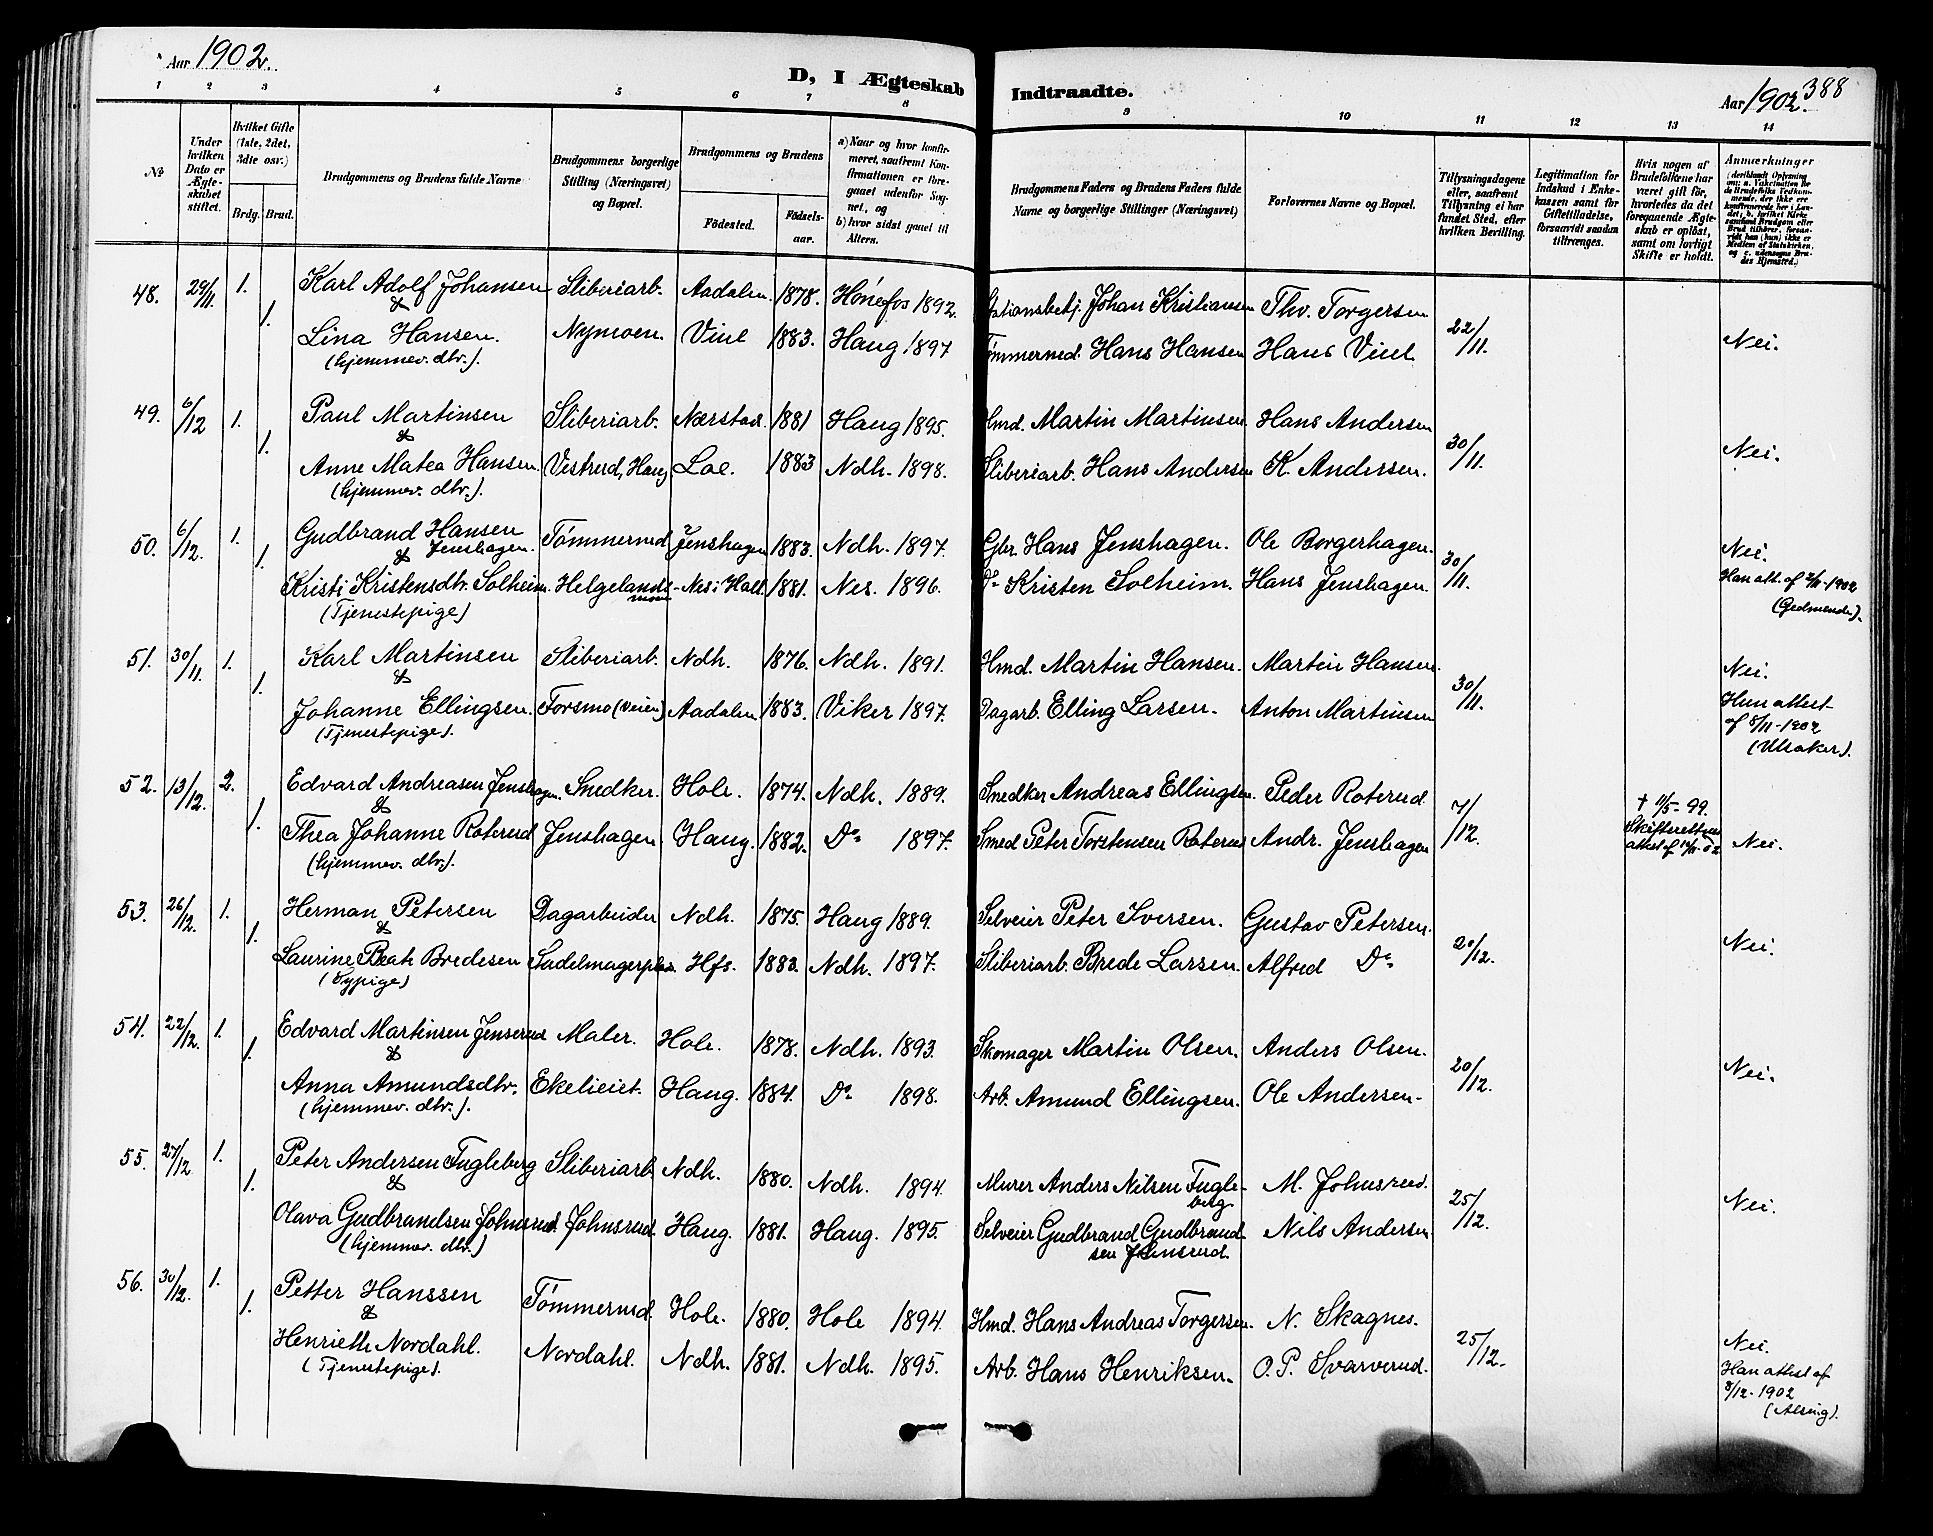 Aar 1902.
D, I Ægteskab Indtraadte.
Aar 1902. 388
1 2 3 4 5 6 7 8 9 10 11 12 13 14
No
Under hvilken Dato er Ægteskabet stiftet.
Hvilket Gifte (1ste, 2det, 3die osv.)
Brdg. Brud.
Brudgommens og Brudens fulde Navne
Brudgommens borgerlige Stilling (Næringsvei) og Bopæl.
Brudgommens og Brudens
Fødested. Fødselsaar.
a) Naar og hvor konfirmeret, saafremt Konfirmationen er foregaaet udenfor Sognet, og
b) hvor sidst gaaet til Alters.
Brudgommens Faders og Brudens Faders fulde Navne og borgerlige Stillinger (Næringsvei)
Forlovernes Navne og Bopæl.
Tillysningsdagene eller, saafremt Tillysning ei har fundet Sted, efter hvilken Bevilling.
Legitimation for Indskud i Enkekassen samt for Giftetilladelse, forsaavidt saadan tiltrænges.
Hvis nogen af Brudefolkene har været gift før, hvorledes da det foregaaende Ægteskab er opløst, samt om lovligt Skifte er holdt.
Anmærkninger
48. 29/11. 1. Karl Adolf Johansen Sliberiarb. Aadalen. 1878. Hønefos 1892. Stationsbetj. Johan Kristiansen Thv. Torgersen
&
1. Lina Hansen. Nymoen. Viul 1883. Haug 1897 Tømmermd. Hans Hansen Hans Viul 22/11. Nei.
(hjemmev. dtr.).
49. 6/12 1. Paul Martinsen Sliberiarb. Nærstad. 1881 Haug 1895. Hmd. Martin Martinsen. Hans Andersen
&
1. Anne Matea Hansen Vestrud, Haug Loe. 1883 Ndh. 1898. Sliberiarb. Hans Andersen K. Andersen. 30/11. Nei.
(hjemmev. dtr.).
50. 6/12. 1. Gudbrand Hansen Jenshagen. Tømmermd Jenshagen 1883. Ndh. 1897. Gbr. Hans Jenshagen. Ole Borgerhagen. Nei.
&
1. Kristi Kristensdtr. Solheim. Helgelandsmoen - Nes i Hall. 1881. Nes. 1896. Do Kristen Solheim. Hans Jenshagen. 30/11. Han att. af 2/11-1902
(Tjenestepige)
51. 30/11. 1. Karl Martinsen Sliberiarb. Ndh. 1876. Ndh. 1891. Hmd. Martin Hansen. Martin Hansen. Nei.
&
1. Johanne Ellingsen. Forsmo (Veien) Aadalen 1883. Viker 1897. Dagarb. Elling Larsen. Anton Martinsen 30/11. Hun attest
(Tjenestepige). af 8/11-1902
(Ulsaker).
52. 13/12. 2. Edvard Andreasen Jenshagen. Snedker. Hole. 1874. Ndh. 1889. Snedker Andreas Ellingsen. Peder Roterud † 11/5-99.
&
1. Thea Johanne Roterud Jenshagen Haug. 1882. Do 1897. Smed Peter Torstensen Roterud Andr. Jenshagen 7/12. Skifterettens attest af Nei.
(hjemmev. dtr.).
53. 26/12. 1. Herman Petersen Dagarbeider Ndh. 1875. Haug 1889. Selveier Peter Iversen. Gustav Petersen.
&
1. Laurine Beate Bredesen Sadelmagerplas Hfs. 1883. Ndh. 1897. Sliberiarb. Brede Larsen. Alfred Do 20/12. Nei.
(Sypige)
54. 22/12. 1. Edvard Martinsen Jenserud Maler. Hole. 1878. Ndh. 1893. Skomager Martin Olsen. Anders Olsen.
&
1. Anna Amundsdtr. Ekelieiet. Haug. 1884. Do 1898. Arb. Amund Ellingsen. Ole Andersen. 20/12. Nei.
(hjemmev. dtr.).
55. 27/12 1. Peter Andersen Fugleberg Sliberiarb. Ndh. 1880. Ndh. 1894. Murer Anders Nilsen Fugleberg M. Johnsrud.
&
1. Olava Gudbrandsen Johnsrud. Johnsrud. Haug. 1881. Haug. 1895. Selveier Gudbrand Gudbrandsen Johnsrud. Nils Andersen. 25/12. Nei.
(hjemmev. dtr.)
56. 30/12. 1. Petter Hanssen Tømmermd. Hole. 1880. Hole 1894. Hmd. Hans Andreas Torgersen. N. Skagnes.
&
1. Henriette Nordahl. Nordahl. Ndh. 1881. Ndh. 1895. Arb. Hans Henriksen. O. P. Svarverud. 25/12. Nei.
(Tjenestepige). Han attest af
8/12-1902